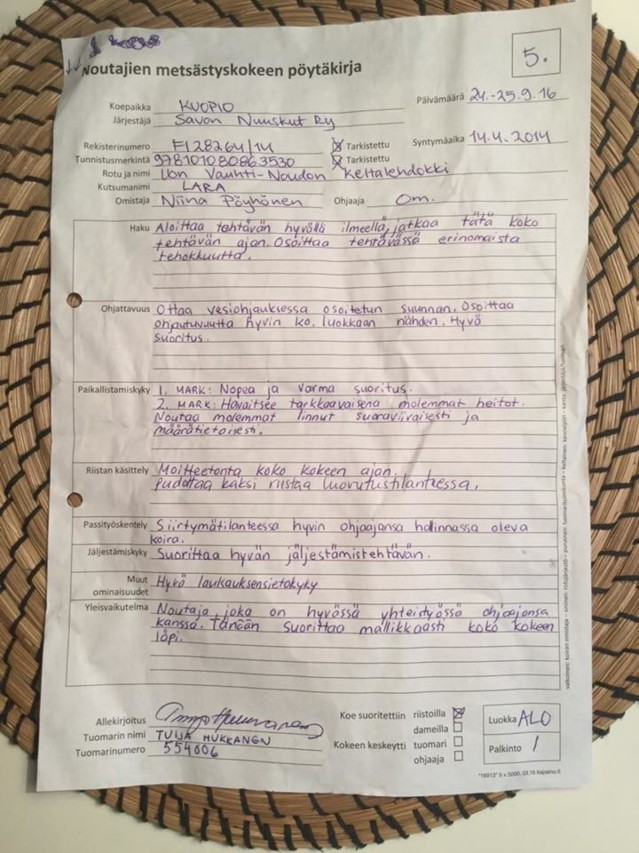 5.
Noutajien metsästyskokeen pöytäkirja
Koepaikka KUOPIO
Päivämäärä 24.-25.9.16
Järjestäjä Savon Nuuskut Ry
Rekisterinumero FI28264/14 Tarkistettu Syntymäaika 14.4.2014
Tunnistusmerkintä 978101080863530 Tarkistettu
Rotu ja nimi Von Vauhti-Noudon Keltalehdokki
Kutsumanimi LARA
Omistaja Niina Pöyhönen Ohjaaja Om.
Haku Aloittaa tehtävän hyvällä ilmeellä, jatkaa tätä koko
tehtävän ajan. Osoittaa tehtävässä erinomaista
tehokkuutta.
Ohjattavuus Ottaa vesiohjauksessa osoitetun suunnan. Osoittaa
ohjautuvuutta hyvin ko. luokkaan nähden. Hyvä
suoritus.
Paikallistamiskyky 1. MARK: Nopea ja varma suoritus.
2. MARK: Havaitsee tarkkaavaisena molemmat heitot.
Noutaa molemmat linnut suoraviivaisesti ja
määrätietoisesti.
Riistan käsittely Moitteetonta koko kokeen ajan,
pudottaa kaksi riistaa luovutustilanteessa.
Passityöskentely Siirtymätilanteessa hyvin ohjaajansa hallinnassa oleva
koira.
Jäljestämiskyky Suorittaa hyvän jäljestämistehtävän.
Muut ominaisuudet Hyvä laukauksensietokyky
Yleisvaikutelma Noutaja joka on hyvässä yhteistyössä ohjaajansa
kanssa. Tänään suorittaa mallikkaasti koko kokeen
läpi.
Allekirjoitus
Koe suoritettiin riistoilla
dameilla
Luokka ALO
Tuomarin nimi TUIJA HUKKANEN
Kokeen keskeytti tuomari
ohjaaja
Palkinto 1
Tuomarinumero 554006